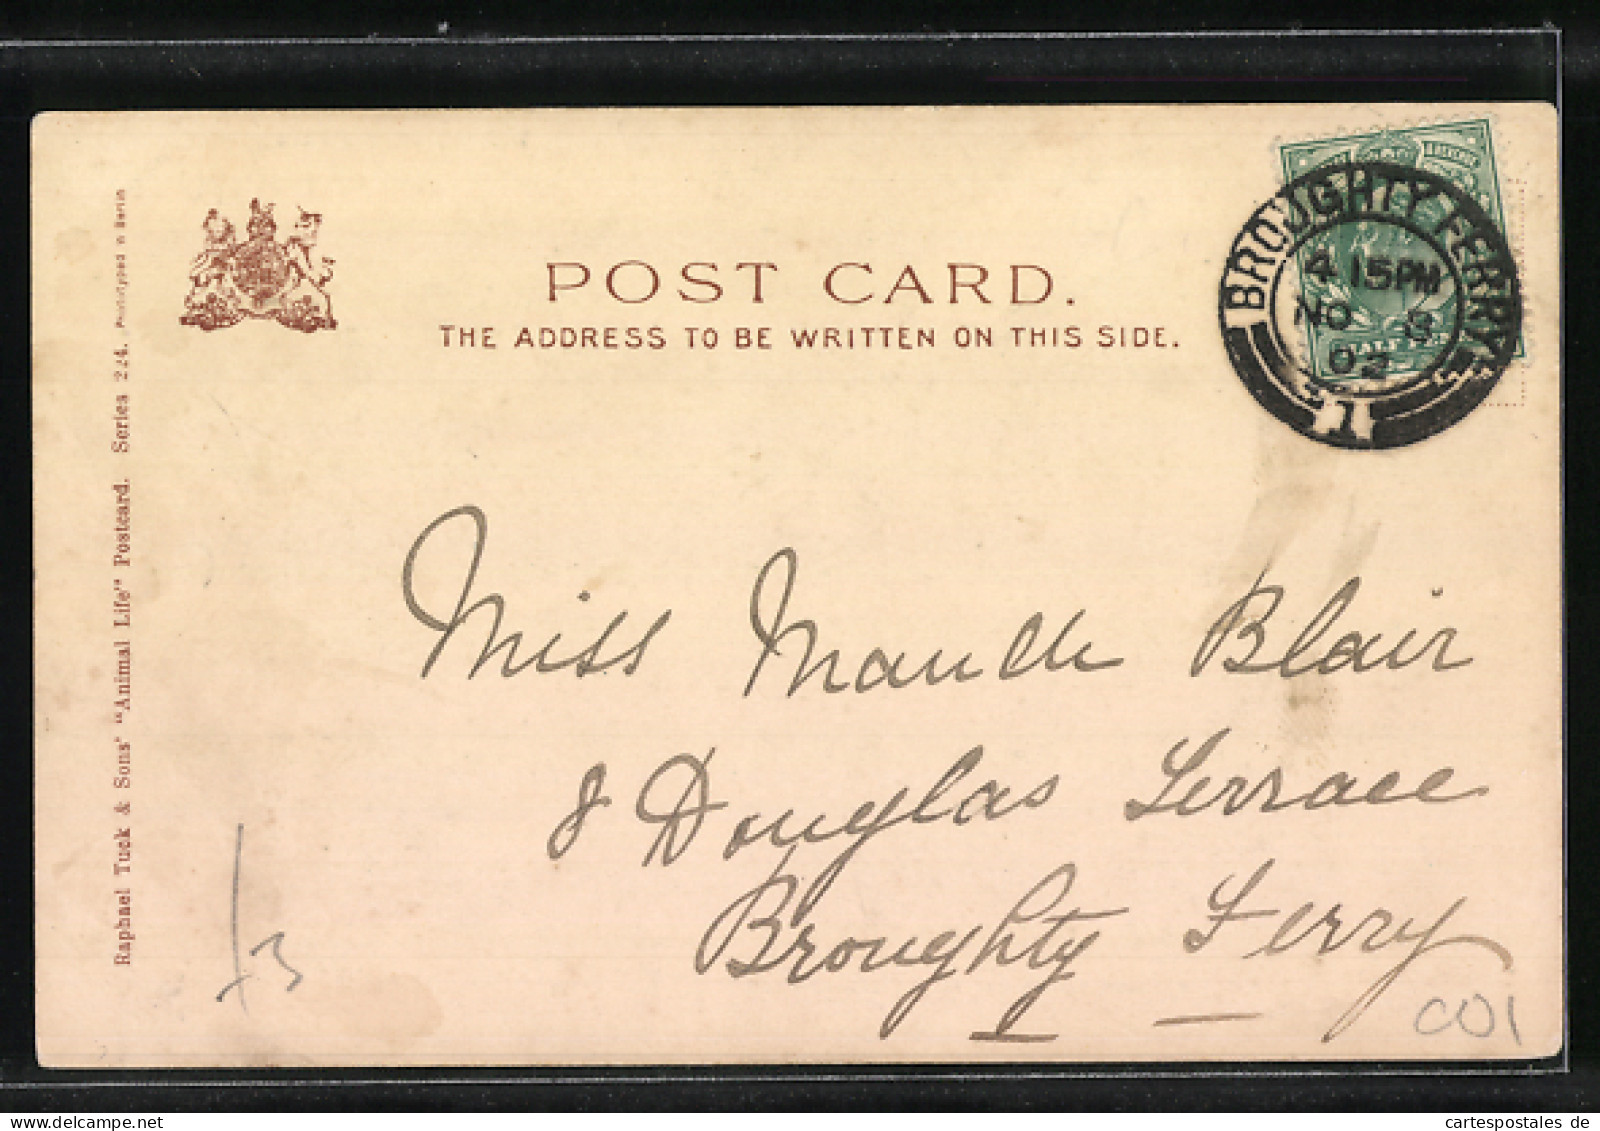 POST CARD.
THE ADDRESS TO BE WRITTEN ON THIS SIDE.
BROUGHTY FERRY
4 15PM
NO 8
02
1
HALF
Miss Maude Blair
8 Douglas Terrace
Broughty Ferry
Raphael Tuck & Sons' "Animal Life" Postcard. Series 224. Phototyped in Berlin
13
001
cartespostales de